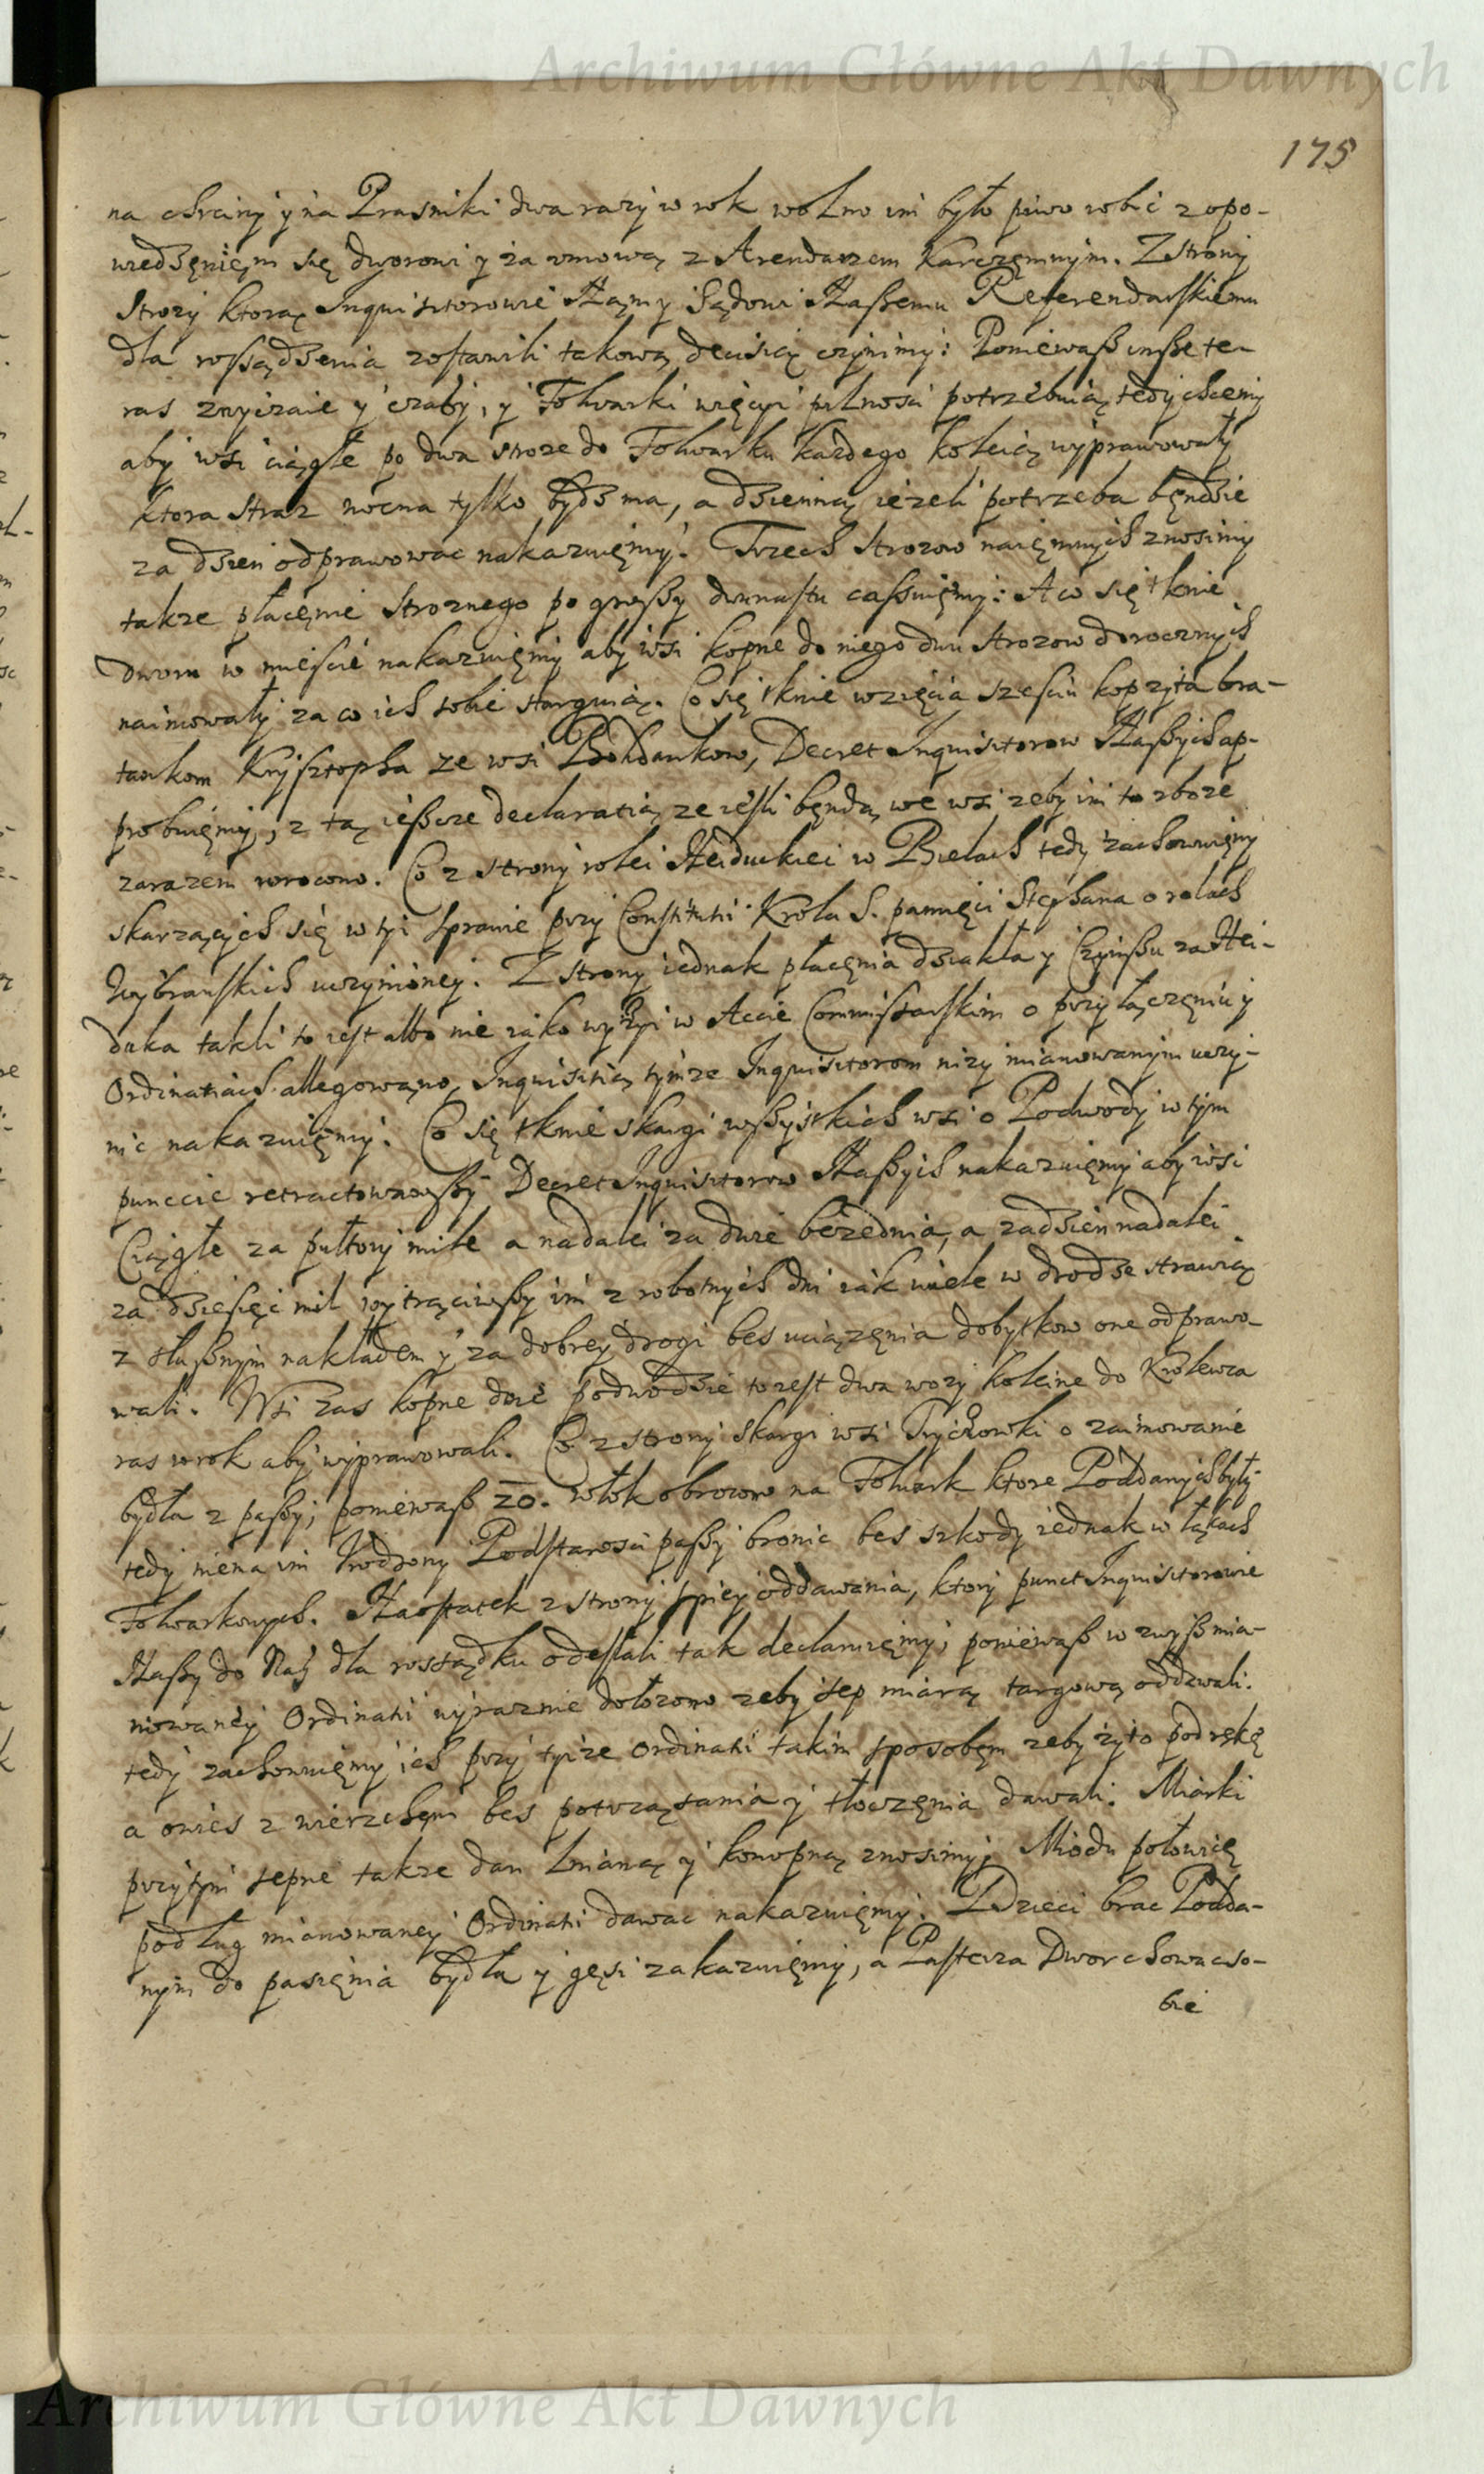 Archiwum Główne Akt Dawnych
175
na chrciny y na Prasniki dwa razy w rok wolno im było piwo robić z opo-
wiedzęnięm się dworowi y za vmową z Arendarzem Karczęmnym. Z strony
Strozy ktorą Inquisitorowie Nąmy Sądowi Naszemu Referendarskiemu
dla rossądzenia zostawili takową decisią czynimy: Poniewasz insze te-
ras zwyczaie y czasy, y Folwarki więcyi pilnosci potrzebuią, tedy chcemy
aby wsi ciągłe po dwa stroze do Folwarku kazdego koleią wyprawowały
ktora straz nocna tylko bydz ma, a dzienną iezeli potrzeba bęndzie
za dzien odprawowac nakazuięmy. Trzech Strozow naięmnych znosimy
takze płacęnie Stroznego po groszy dwunastu cassuięmy: A co się tknie
dworu w mieście nakazuięmy aby wsi kopne do niego dwu Strozow dorocznych
naimowały za co ich sobie stargują. Co się tknie wzięcia sześciu kop zyta bra-
tankom Krysztopha ze wsi Bohdankow, Decret Inquisitorow Naszych ap-
probuięmy, z tą ieszcze declaratią ze ieśli bęndą we wsi zeby im to zboze
zarazem wrocono. Co z strony rolei Heiduckiei w Bielach tedy zachowuięmy
skarząцych się w tyi sprawie przy Constitutii Krola S. pamięci Stephana o rolach
Wybranskich uczynioney. Z strony iednak płacęnia dziakła y Czynszu za Hei-
duka takli to iest albo nie iako wyzyi w Accie Commissarskim o przyłączęniu y
Ordinatiach allegowano, Inquisitią tymze Inquisitorom nizy mianowanym uczy-
nic nakazuięmy. Co się tknie skargi wszystkich wsi o Podwody w tym
punccie retractowawszy Decret Inquisitorow Naszych nakazuięmy aby wsi
Ciągłe za pułtory mile a nadalei za dwie beze dnia, a za dzien nadalei
za dziesięć mil wytrąciwszy im z robotnych dni iak wiele w drodze strawią
z słusznym nakładem y za dobrey drogi bes uciązęnia dobytkow one odprawo-
wali. Wsi zas kopne dwie podwodzie to iest dwa wozy koleine do Krolewca
ras w rok aby wyprawowali. Co z strony skargi wsi Pryczowki o zaimowanie
bydła z paszy; poniewasz 20. włok obrocono na Folwark ktore Poddanych były
tedy niema im Urodzony Podstarosci paszy bronic bes szkody iednak w łąkach
Folwarkowych. Naostatek z strony spiey oddawania, ktory punct Inquisitorowie
Naszy do Nas dla rossądku odesłali tak declaruięmy; poniewasz w zwysz mia-
nowaney Ordinatii wyraznie dołozono zeby sep miarą targową oddawali.
tedy zachowuięmy ich przy tyize ordinatii takim sposobęm zeby zyto pod rękę
a owies z wierzchęm bes potrząsania y tłoczęnia dawali. Miarki
przytym sepne takze dan lnianą y konopną znosimy; Miodu połowicę
podług mianowaney Ordinatii dawac nakazuięmy. Dzieci brac Podda-
nym do pasięnia bydła y gęsi zakazuięmy, a Pasterza Dwor chowac so-
bie
Archiwum Główne Akt Dawnych